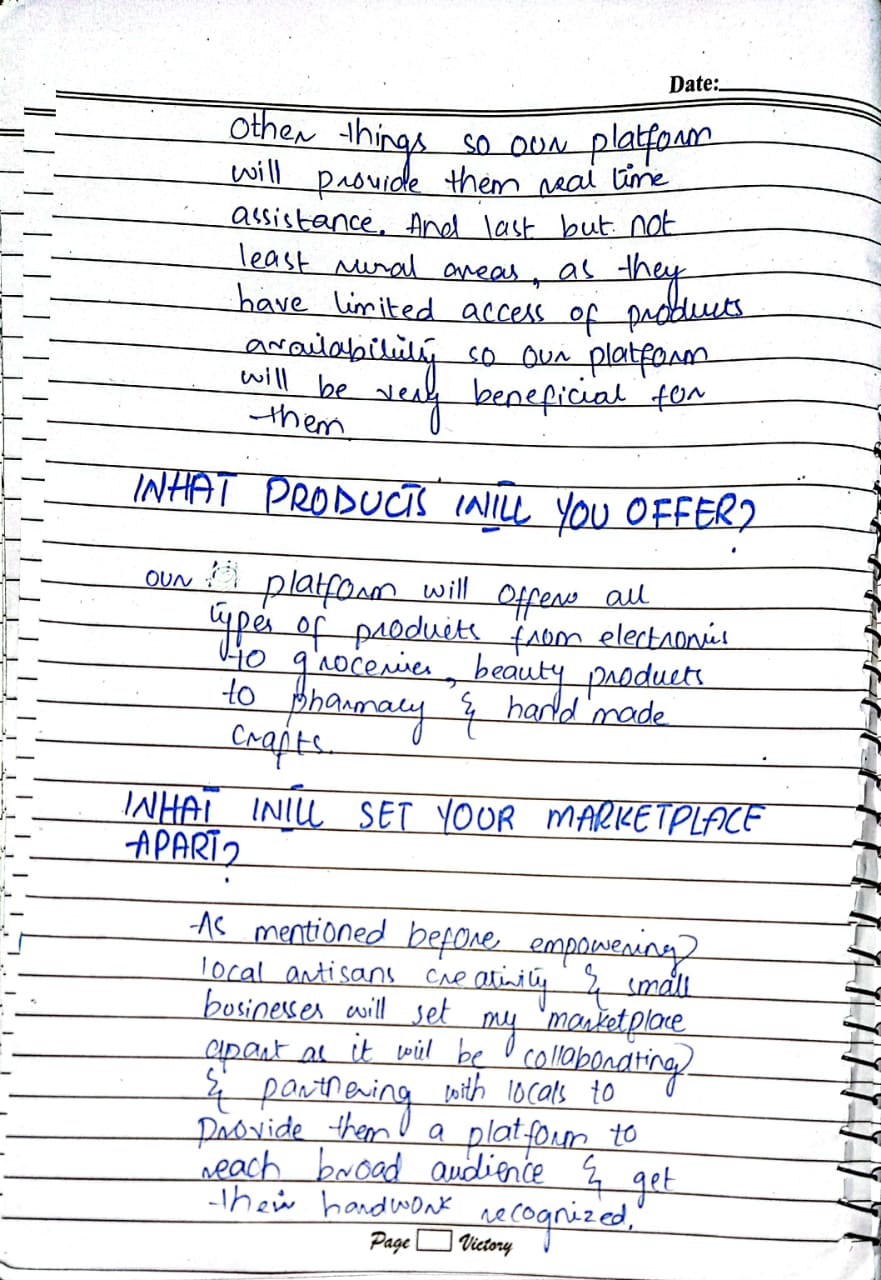 Date:
Other things so our platform
will provide them real time
assistance. And last but not
least rural areas, as they
have limited access of products
availability so our platform
will be very beneficial for
them
WHAT PRODUCTS WILL YOU OFFER?
our platform will offers all
types of products from electronics
to groceries, beauty products
to pharmacy & hand made
crafts.
WHAT WILL SET YOUR MARKETPLACE
APART?
As mentioned before empowering
local artisans creativity & small
businesses will set my marketplace
apart as it will be collaborating
& partnering with locals to
provide them a platform to
reach broad audience & get
their hardwork recognized.
Page Victory